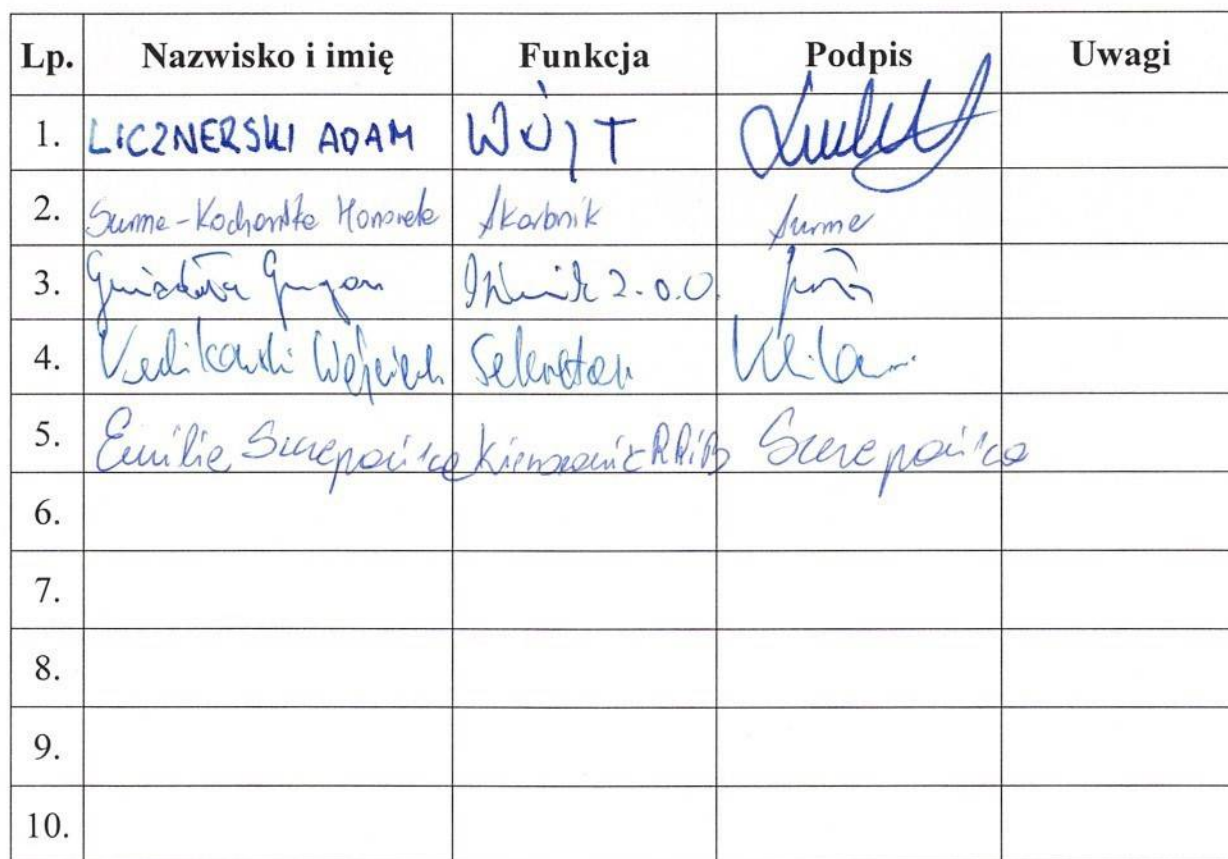 Lp. Nazwisko i imię Funkcja Podpis Uwagi
1. LICZNERSKI ADAM WÓJT
2. Surma-Kochańska Honorata Skarbnik Surma
3.
4. Wojciech Sekretarz
5. Emilia Szczepańska Kierownik Szczepańska
6.
7.
8.
9.
10.